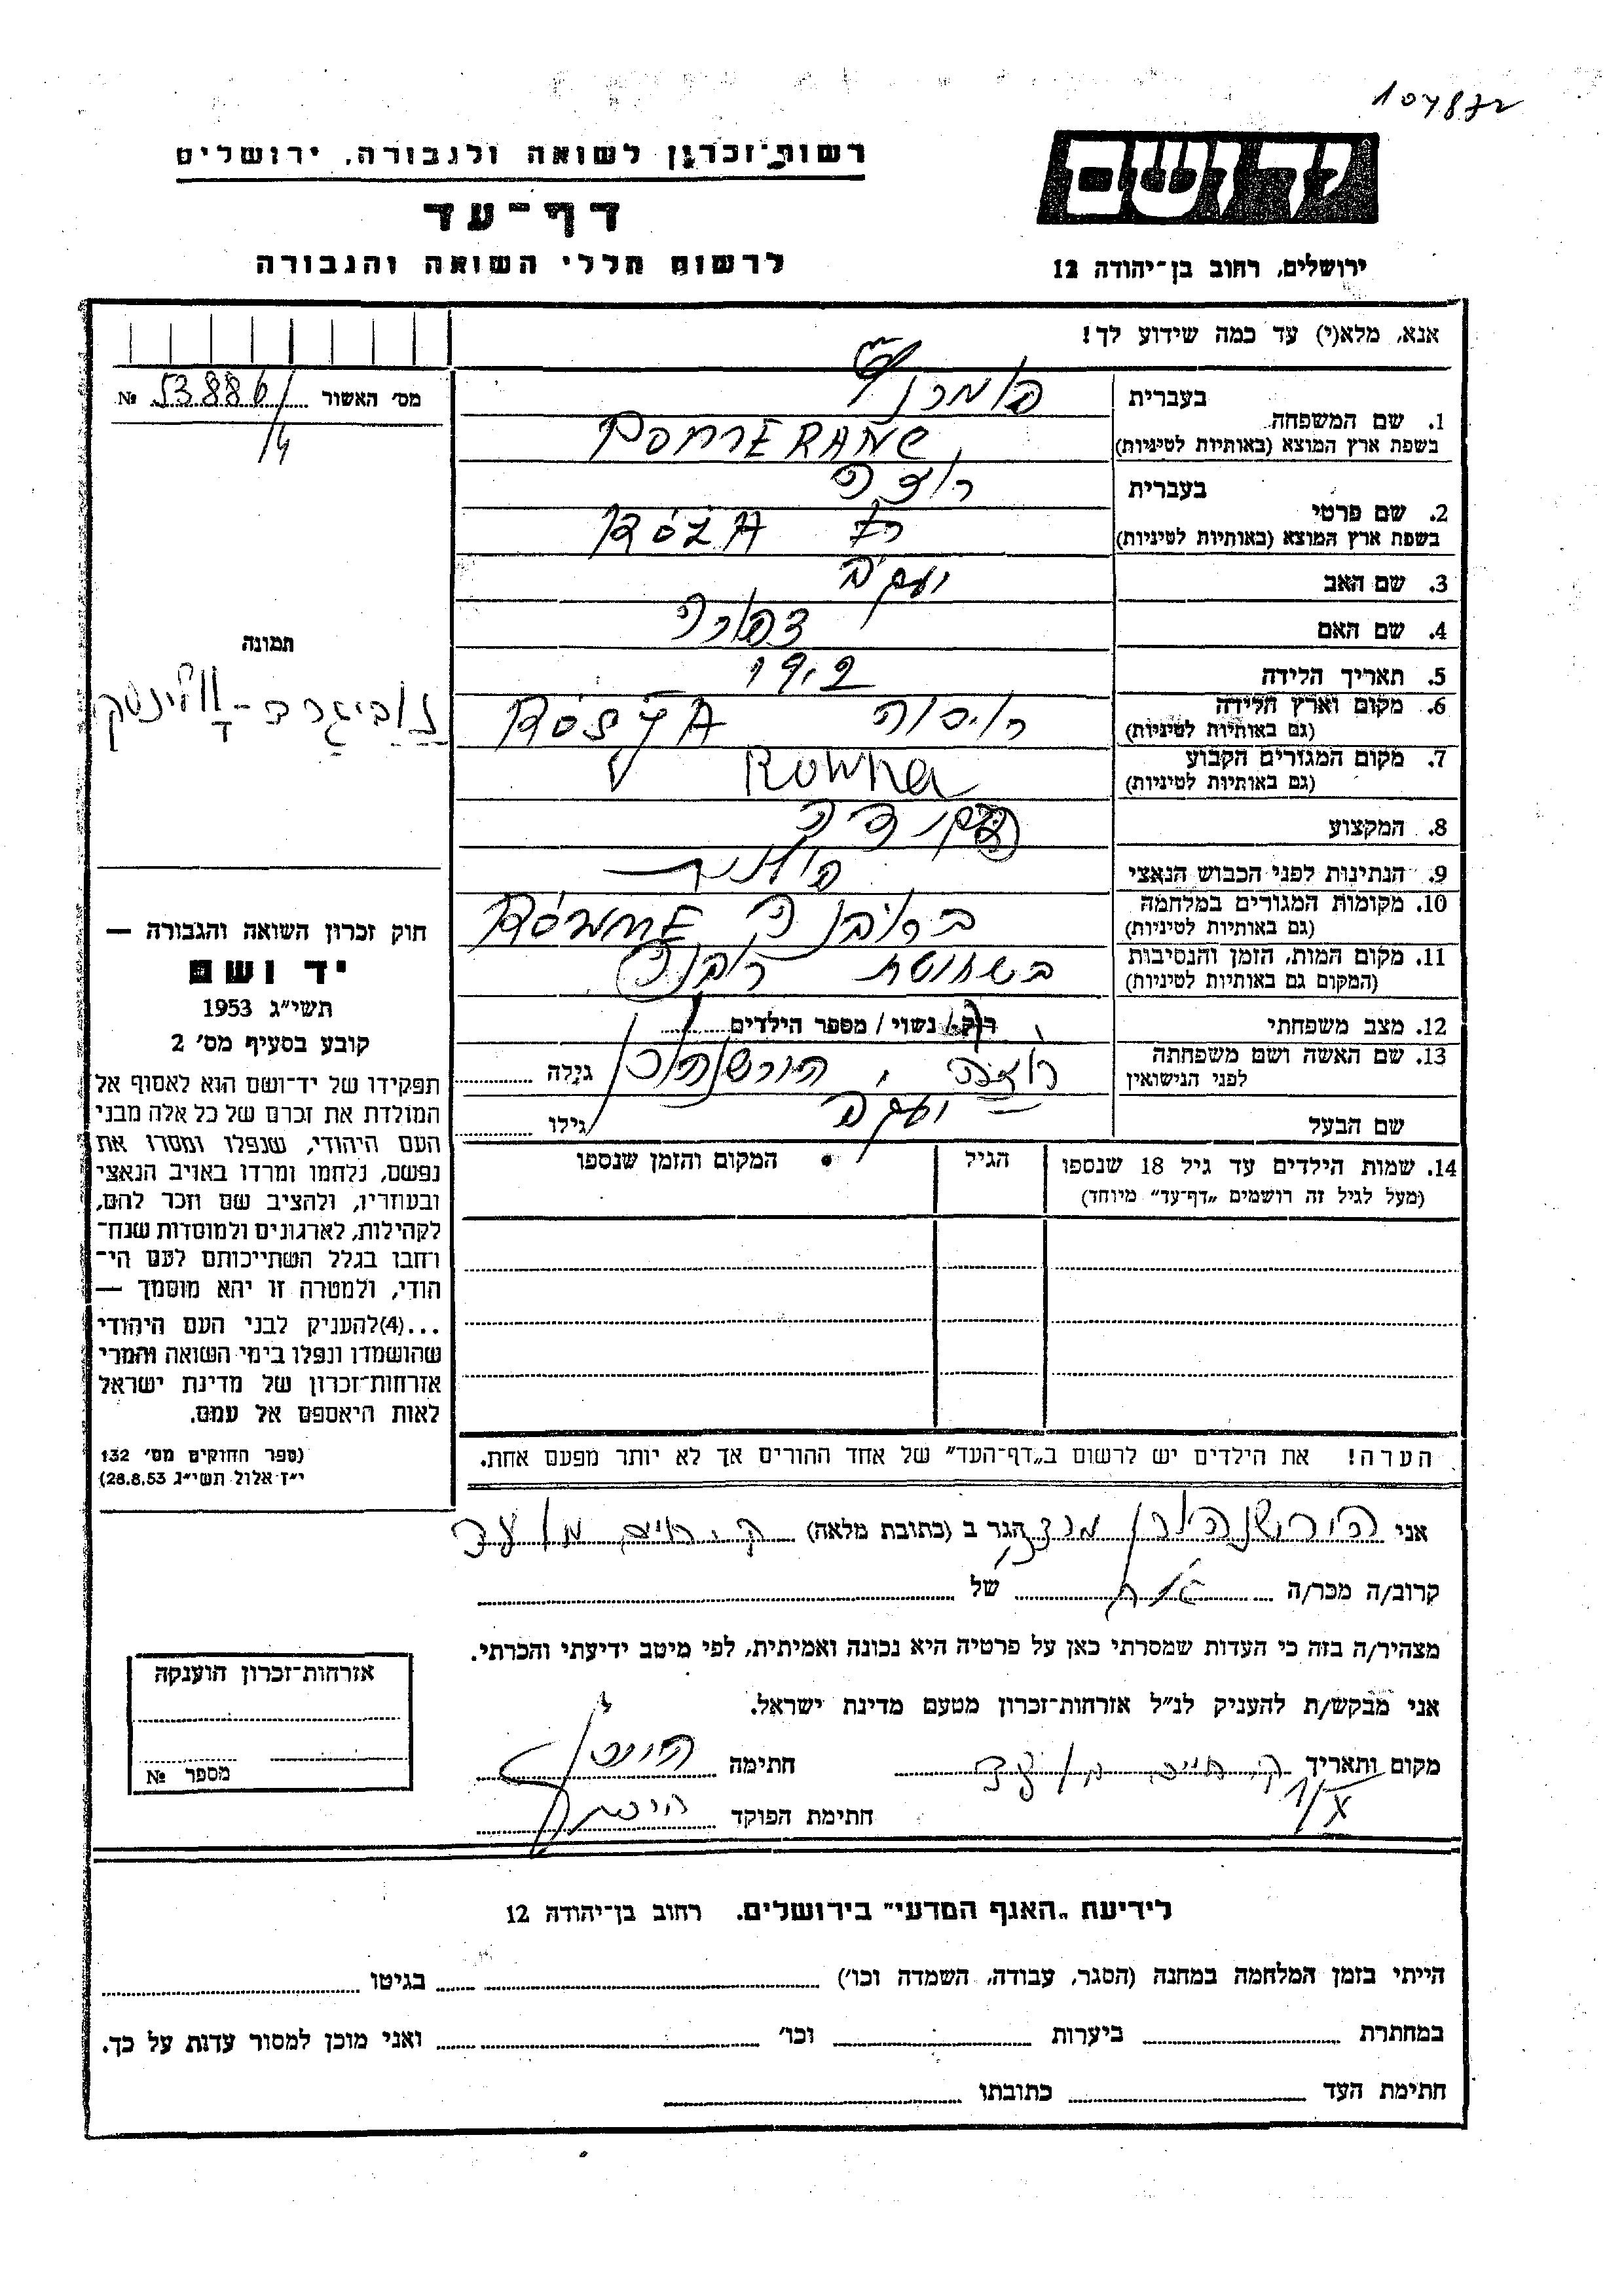 107872
יד ושם
רשות־זכרון לשואה ולגבורה, ירושלים
דף־עד
לרשום חללי השואה והגבורה
ירושלים, רחוב בן־יהודה 12
אנא, מלא(י) עד כמה שידוע לך!
מס' האשור 53886 №
/4
1. שם המשפחה בעברית
בשפת ארץ המוצא (באותיות לטיניות) POMERANC
2. שם פרטי בעברית רוזה
בשפת ארץ המוצא (באותיות לטיניות) RÓŻA
3. שם האב
4. שם האם צפורה
5. תאריך הלידה 1902
6. מקום וארץ הלידה רוסיה ROSJA
(גם באותיות לטיניות)
7. מקום המגורים הקבוע
(גם באותיות לטיניות)
8. המקצוע
9. הנתינות לפני הכבוש הנאצי
10. מקומות המגורים במלחמה RÓWNE
(גם באותיות לטיניות)
11. מקום המות, הזמן והנסיבות בשחיטת
(המקום גם באותיות לטיניות)
12. מצב משפחתי רוק / נשוי / מספר הילדים
13. שם האשה ושם משפחתה גילה
לפני הנישואין
שם הבעל גילו
14. שמות הילדים עד גיל 18 שנספו הגיל המקום והזמן שנספו
(מעל לגיל זה רושמים „דף־עד” מיוחד)
הערה! את הילדים יש לרשום ב„דף־העד” של אחד ההורים אך לא יותר מפעם אחת.
תמונה
חוק זכרון השואה והגבורה —
יד ושם
תשי״ג 1953
קובע בסעיף מס' 2
תפקידו של יד־ושם הוא לאסוף אל
המולדת את זכרם של כל אלה מבני
העם היהודי, שנפלו ומסרו את
נפשם, נלחמו ומרדו באויב הנאצי
ובעוזריו, ולהציב שם וזכר להם,
לקהילות, לארגונים ולמוסדות שנח־
רחבו בגלל השתייכותם לעם הי־
הודי, ולמטרה זו יהא מוסמך —
...(4)להעניק לבני העם היהודי
שהושמדו ונפלו בימי השואה והמרי
אזרחות־זכרון של מדינת ישראל
לאות היאספם אל עמם.
(ספר החוקים מס' 132
י״ז אלול תשי״ג 28.8.53)
אני הגר ב (כתובת מלאה) ק. חיים
קרוב/ה מכר/ה של
מצהיר/ה בזה כי העדות שמסרתי כאן על פרטיה היא נכונה ואמיתית, לפי מיטב ידיעתי והכרתי.
אני מבקש/ת להעניק לנ״ל אזרחות־זכרון מטעם מדינת ישראל.
מקום ותאריך ק. חיים חתימה
חתימת הפוקד
אזרחות־זכרון הוענקה
מספר №
לידיעת „האגף המדעי” בירושלים. רחוב בן־יהודה 12
הייתי בזמן המלחמה במחנה (הסגר, עבודה, השמדה וכו') בגיטו
במחתרת ביערות וכו' ואני מוכן למסור עדות על כך.
חתימת העד כתובתו